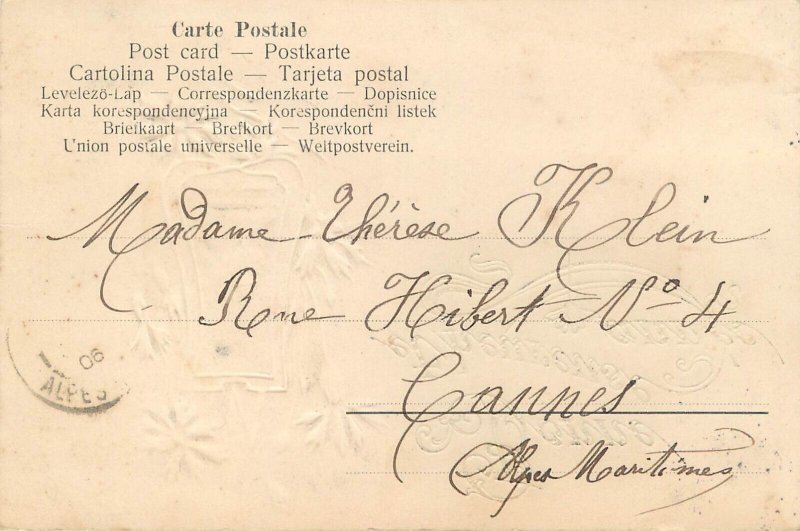 Carte Postale
Post card — Postkarte
Cartolina Postale — Tarjeta postal
Levelezö-Lap — Correspondenzkarte — Dopisnice
Karta korespondencyjna — Korespondenční listek
Briefkaart — Brefkort — Brevkort
Union postale universelle — Weltpostverein.
Madame Thérèse Klein
Rue Hibert No 4
Cannes
Alpes Maritimes
06
ALPES